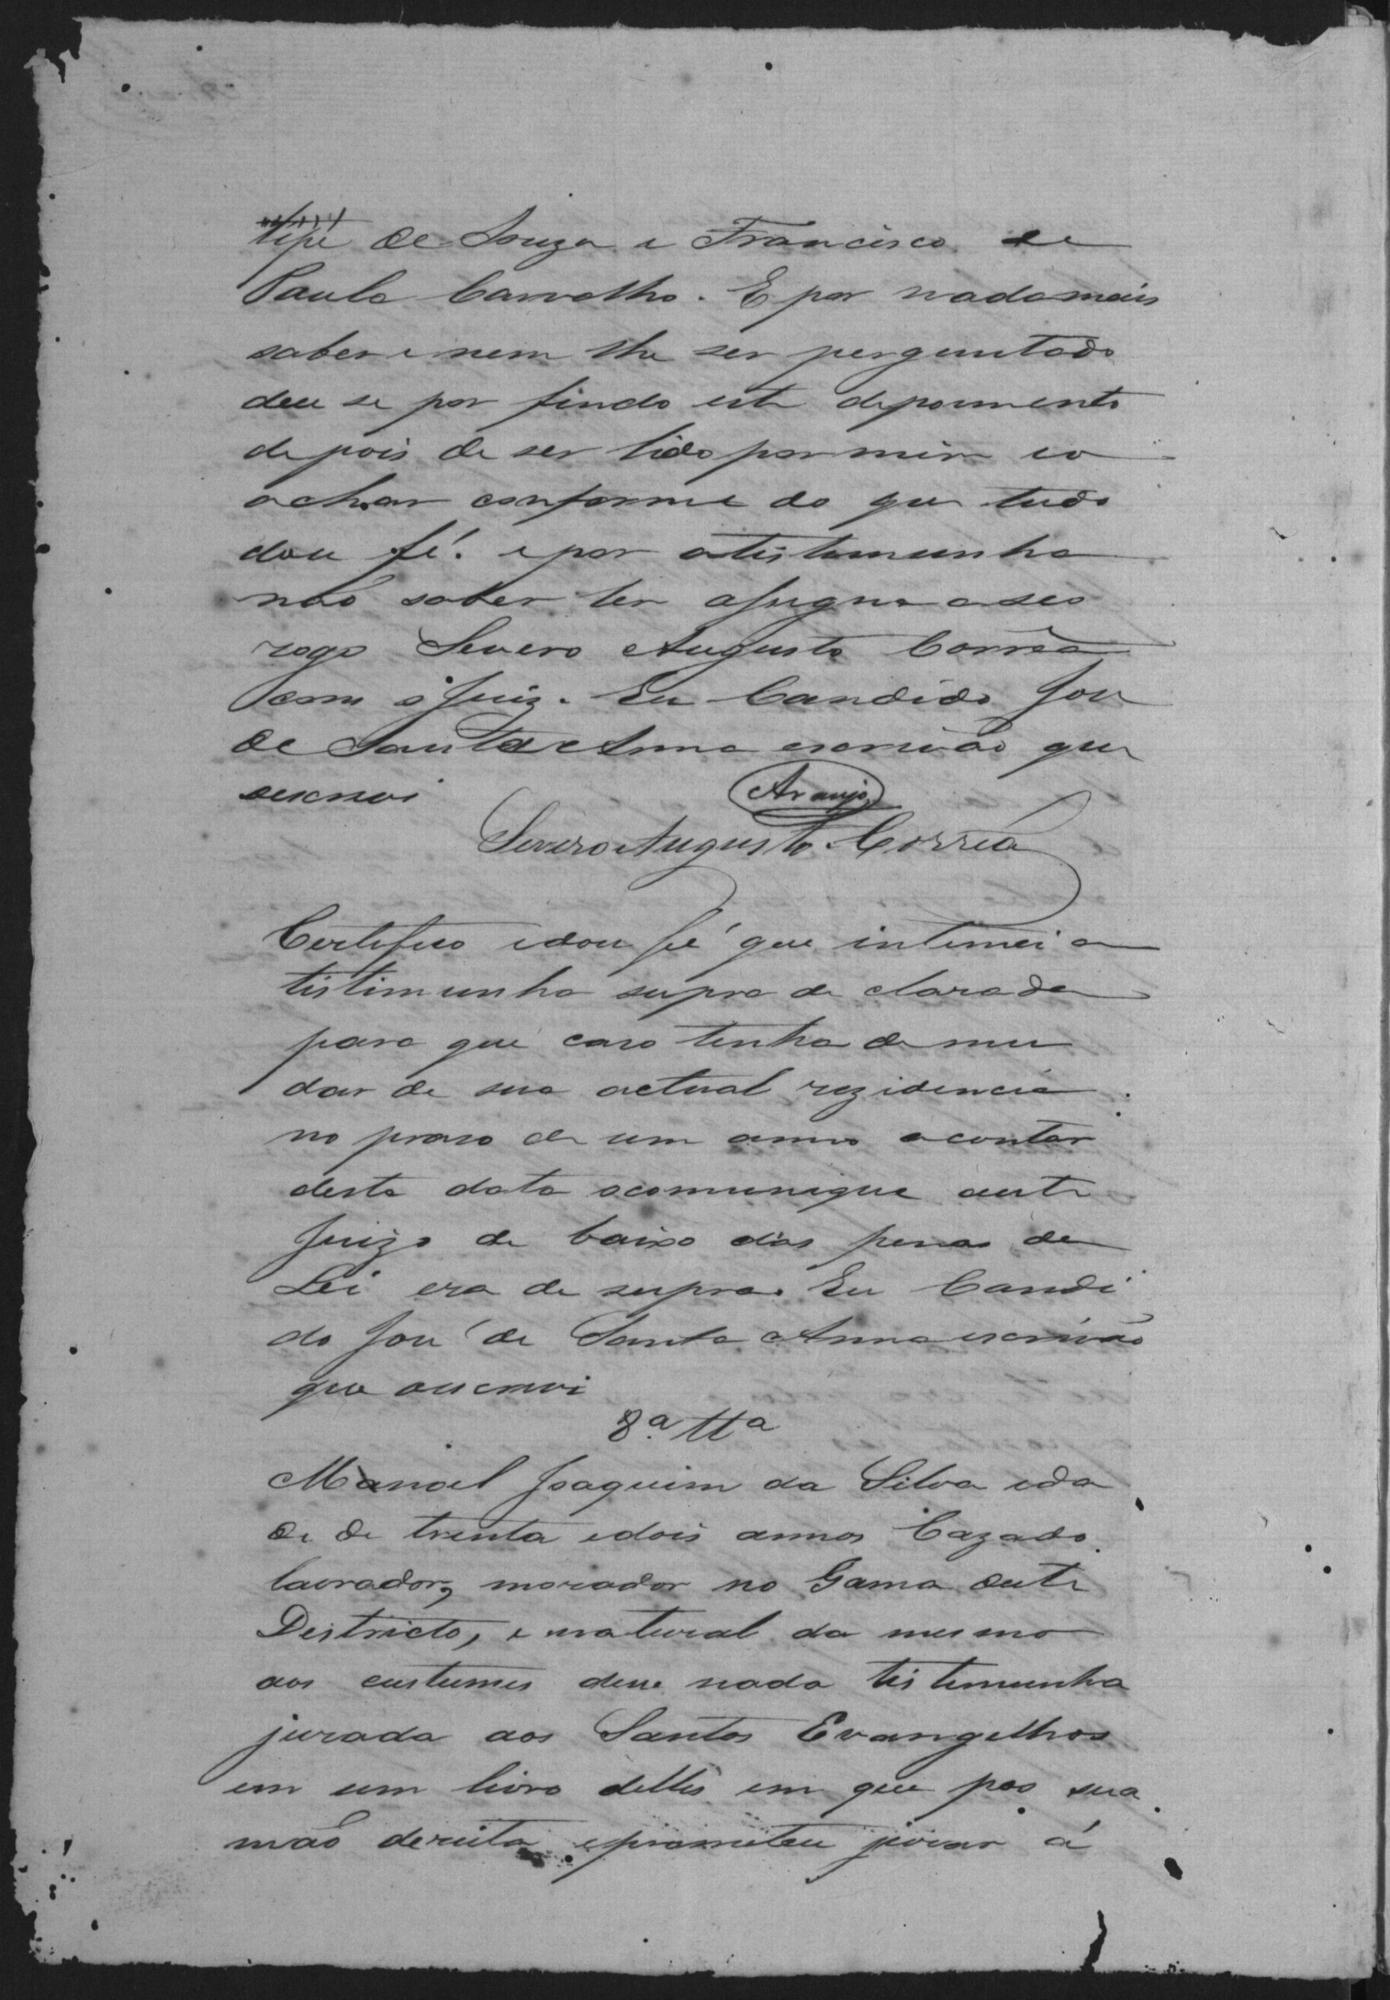 lipe de Souza e Francisco de
Paula Carvalho. E por nada mais
saber e nem lhe ser perguntado
deu se por findo este depoimento
depois de ser lido por mim eo
achar conforme do que tudo
dou fé. e por atestemunha
não saber ler assigna aseo
rogo Severo Augusto Corrêa
com o Juiz. Eu Candido José
de Santa Anna escrivão que
escrevi
Araujo
Severo Augusto Corrêa
Certifico edou fé que intimei a
testimunha supra de clarada
para que caso tenha de mu
dar de sua actual rezidencia
no praso de um anno acontar
desta data ocomunique aeste
Juizo de baixo das penas da
Lei era de supra. Eu Candi
do José de Santa Anna escrivão
que escrevi
8.a tta
Manoel Joaquim da Silva ida
de de trenta edois annos Cazado
lavrador, morador no Gama deste
Destricto, e natural do mesmo
aos custumes dice nada testemunha
jurada aos Santos Evangelhos
em um livro delles em que pos sua
mão dereita, eprometeu jurar á